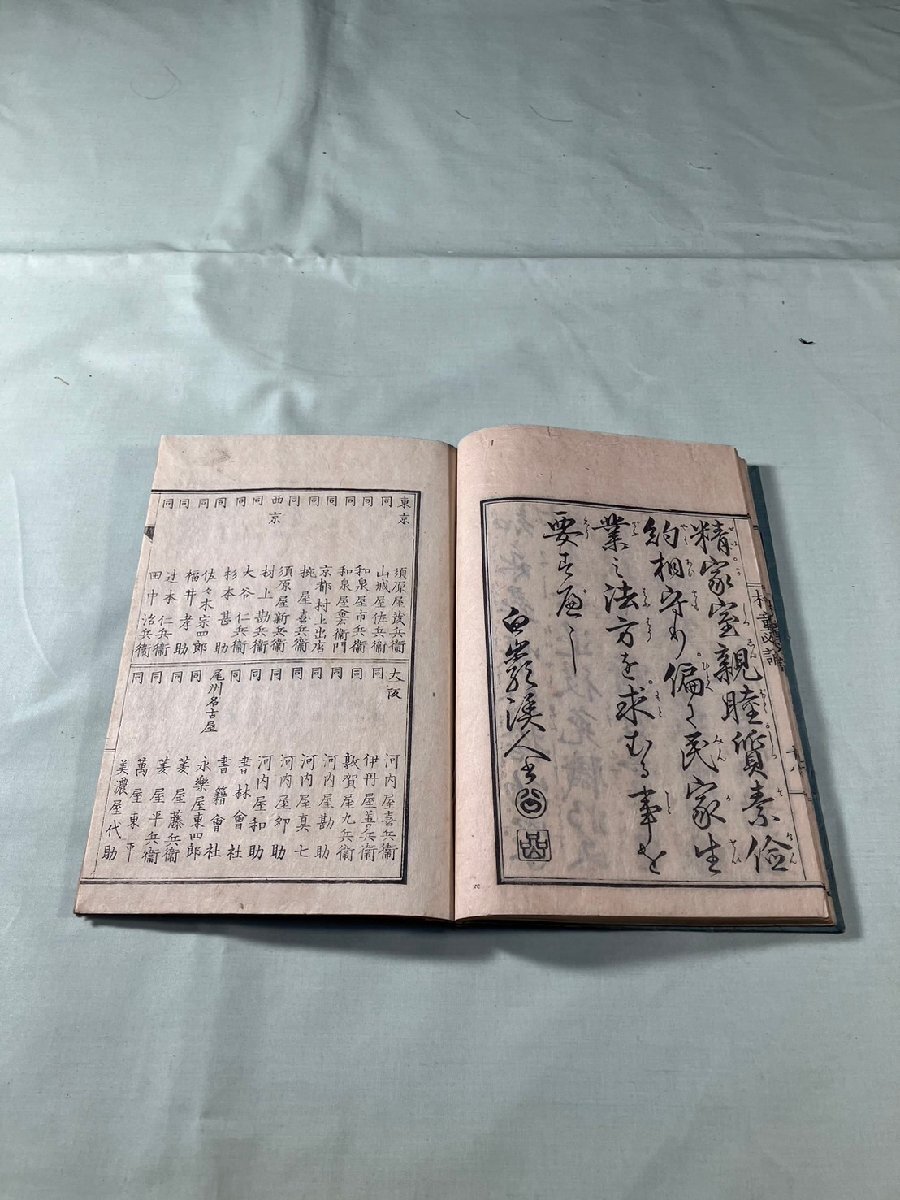 精家室親睦質素儉
約相守り偏に民家生
業之法方を求むる事を
要すべし
東京 須原屋茂兵衛
同 山城屋佐兵衛
同 和泉屋市兵衛
同 和泉屋金右衛門
同 京都村上出店
同 桃屋喜兵衛
同 須原屋新兵衛
西京 村上勘兵衛
同 大谷仁兵衛
同 杉本甚助
同 佐々木宗四郎
同 福井孝助
同 辻本仁兵衛
同 田中治兵衛
大阪 河内屋喜兵衛
同 伊丹屋善兵衛
同 敦賀屋九兵衛
同 河内屋勘助
同 河内屋真七
同 河内屋卯助
同 河内屋和助
同 書林會社
尾川名古屋 書籍會社
同 永樂屋東四郎
同 菱屋藤兵衛
同 菱屋平兵衛
同 萬屋東平
同 美濃屋代助